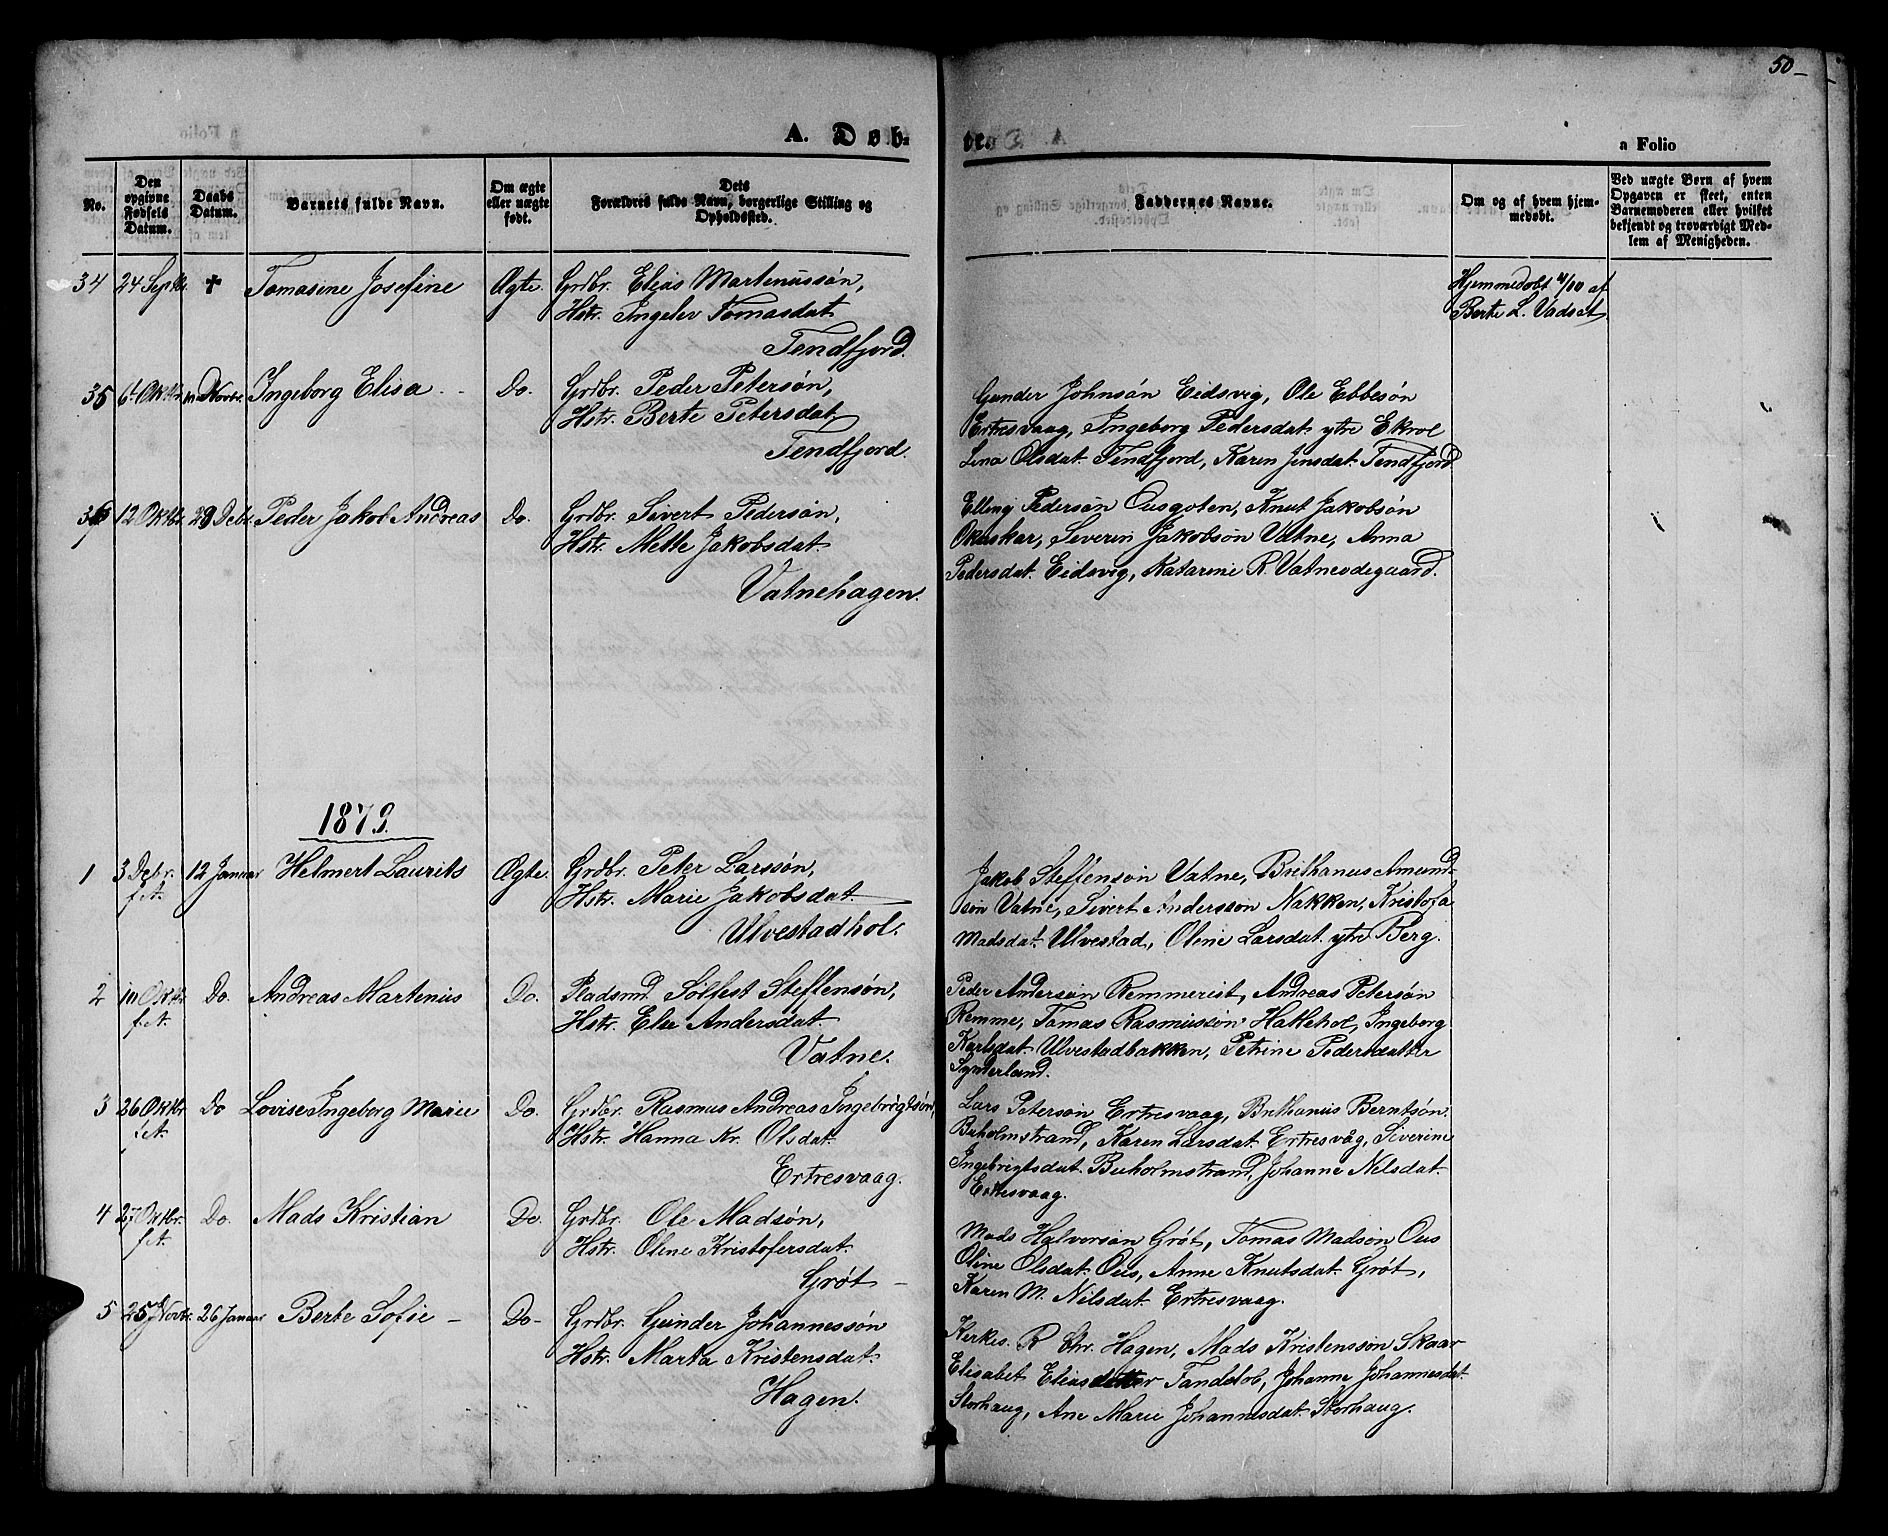 50
A. Døb-
te.
a Folio
No.
Den opgivne Fødsels Datum.
Daabs Datum.
Barnets fulde Navn.
Om ægte eller uægte født.
Dets Forældres fulde Navn, borgerlige Stilling og Opholdssted.
Faddernes Navne.
Om og af hvem hjemmedøbt.
Ved uægte Børn af hvem Opgaven er skeet, enten Barnemoderen eller hvilket bekjendt og troværdigt Medlem af Menigheden.
34 24 Septbr. † Tomasine Josefine Ægte. Grdbr. Elias Martinussøn,
Hstr. Ingelev Tomasdat.
Tendfjord.
Hjemmedøbt 4/10 af
Berte L. Vadset
35 6 Oktbr. Novbr. Ingeborg Elisa Do. Grdbr. Peder Petersøn,
Hstr. Berte Petersdat.
Tendfjord.
Gunder Johnsøn Eidsvig, Ole Ebbesøn
Ertresvaag, Ingeborg Pedersdat. ytre Ekrol
Lina Olsdat. Tendfjord, Karen Jensdat. Tendfjord
36 12 Oktbr. 29 Debr. Peder Jakob Andreas Do. Grdbr. Sivert Pedersøn,
Hstr. Mette Jakobsdat.
Vatnehagen.
Elling Pedersøn Ousgoten, Knut Jakobsøn
Okuskar, Severin Jakobsøn Vatne, Anna
Pedersdat. Eidsvig, Katarine R. Vatneødegaard.
1879.
1 3 Debr. f.A. 12 Januar Helmert Laurits Ægte. Grdbr. Peter Larssøn,
Hstr. Marie Jakobsdat.
Ulvestadhol.
Jakob Steffensøn Vatne, Brithanus Amund-
søn Vatne, Sivert Anderssøn Nakken, Kristofa
Madsdat. Ulvestad, Oline Larsdat. ytre Berg.
2 10 Oktbr. f.A. Do. Andreas Martinus Do. Pladsmd. Sølfest Steffensøn,
Hstr. Elee Andersdat.
Vatne.
Peder Andersøn Remmerist, Andreas Petersøn
Remme, Tomas Rasmussøn Hallehol, Ingeborg
Karlsdat. Ulvestadbakken, Petrine Pedersdatter
Synderland.
3 26 Oktbr. f.A. Do Lovise Ingeborg Marie Do. Grdbr. Rasmus Andreas Ingebrigtsøn,
Hstr. Hanna Kr. Olsdat.
Ertresvaag.
Lars Petersøn Ertresvaag, Brithanus Berntsøn
Buholmstrand, Karen Larsdat. Ertresvåg, Siverine
Ingebrigtsdat. Buholmstrand, Johanne Nilsdat.
Ertresvaag.
4 27 Oktbr. f.A. Do. Mads Kristian Do. Grdbr. Ole Madsøn,
Hstr. Oline Kristofersdat.
Grøt
Mads Halversøn Grøt, Tomas Madsøn Ous
Oline Olsdat. Ous, Anne Knutsdat. Grøt,
Karen M. Nilsdat. Ertresvaag.
5 25 Novbr. 26 Januar Berte Sofie Do Grdbr. Gunder Johannessøn
Hstr. Marta Kristensdat.
Hagen.
Kerkes. R Chr. Hagen, Mads Kristenssøn Skaar
Elisabet Eliasdatter Tandelob, Johanne Johannesdat.
Storhaug, Ane Marie Johannesdat. Storhaug.